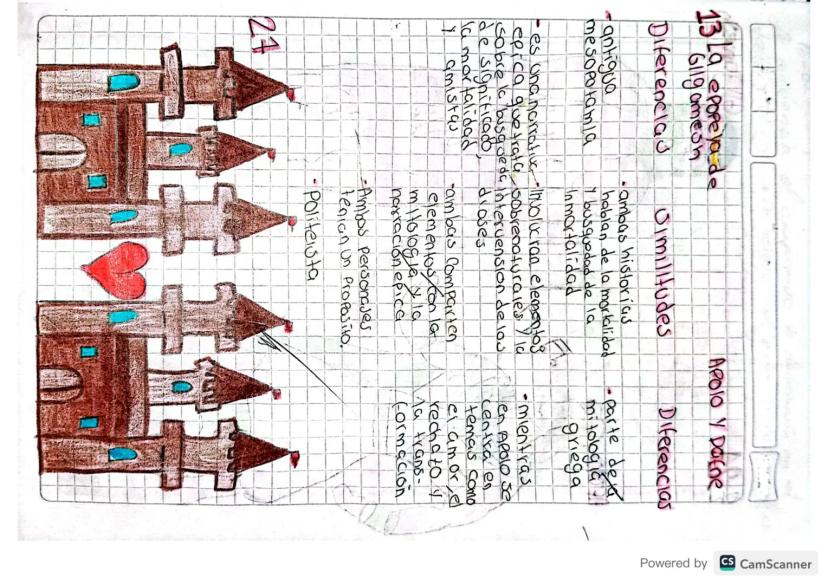 13 La epopeya de
Gilgamesh
Diferencias
- antigua
mesopotamia
- es una narrativa
epica que trata
sobre la busqueda
de significado,
la mortalidad
y amistad
Similitudes
- ambas historias
hablan de la mortalidad
y busquedad de la
Inmortalidad
- Involucran elementos
sobrenaturales y la
intervension de los
dioses
- ambas comparten
elementos con la
mitologia y la
narración epica
- Ambos personajes
tenian un proposito.
- Politeista
Apolo y Dafne
Diferencias
- parte de la
mitologia
griega
- mientras
en Apolo se
centra en
temas como
el amor, el
rechazo y
la trans-
formación
27
Powered by CS CamScanner